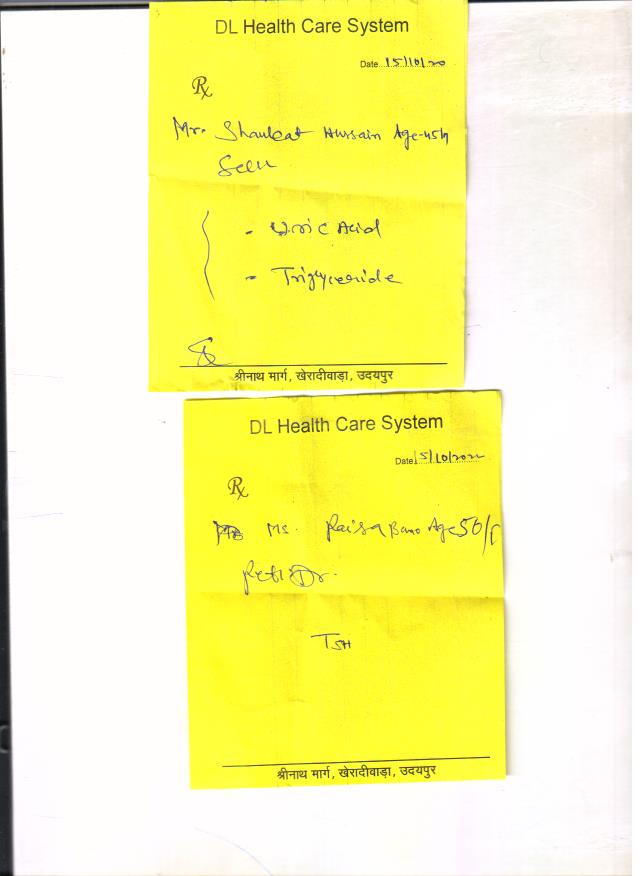 DL Health Care System
Date 15/10/20
Rx
Mr. Shaukat Hussain Age-45/M
Self
- Uric Acid
- Triglyceride
श्रीनाथ मार्ग, खेरादीवाड़ा, उदयपुर
DL Health Care System
Date 15/10/2020
Rx
Ms. Raisa Bano Age 50/F
Dr.
TSH
श्रीनाथ मार्ग, खेरादीवाड़ा, उदयपुर